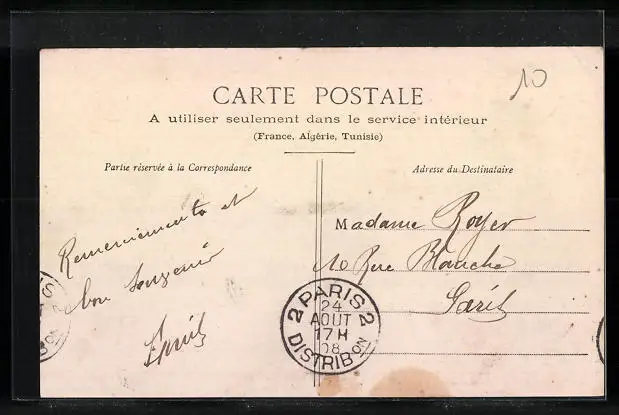 10
CARTE POSTALE
A utiliser seulement dans le service intérieur
(France, Algérie, Tunisie)
Partie réservée à la Correspondance
Remerciements et
bon souvenir
Adresse du Destinataire
Madame Royer
10 Rue Blanche
Paris
2 PARIS 2
24
AOUT
17 H
08
DISTRIBON